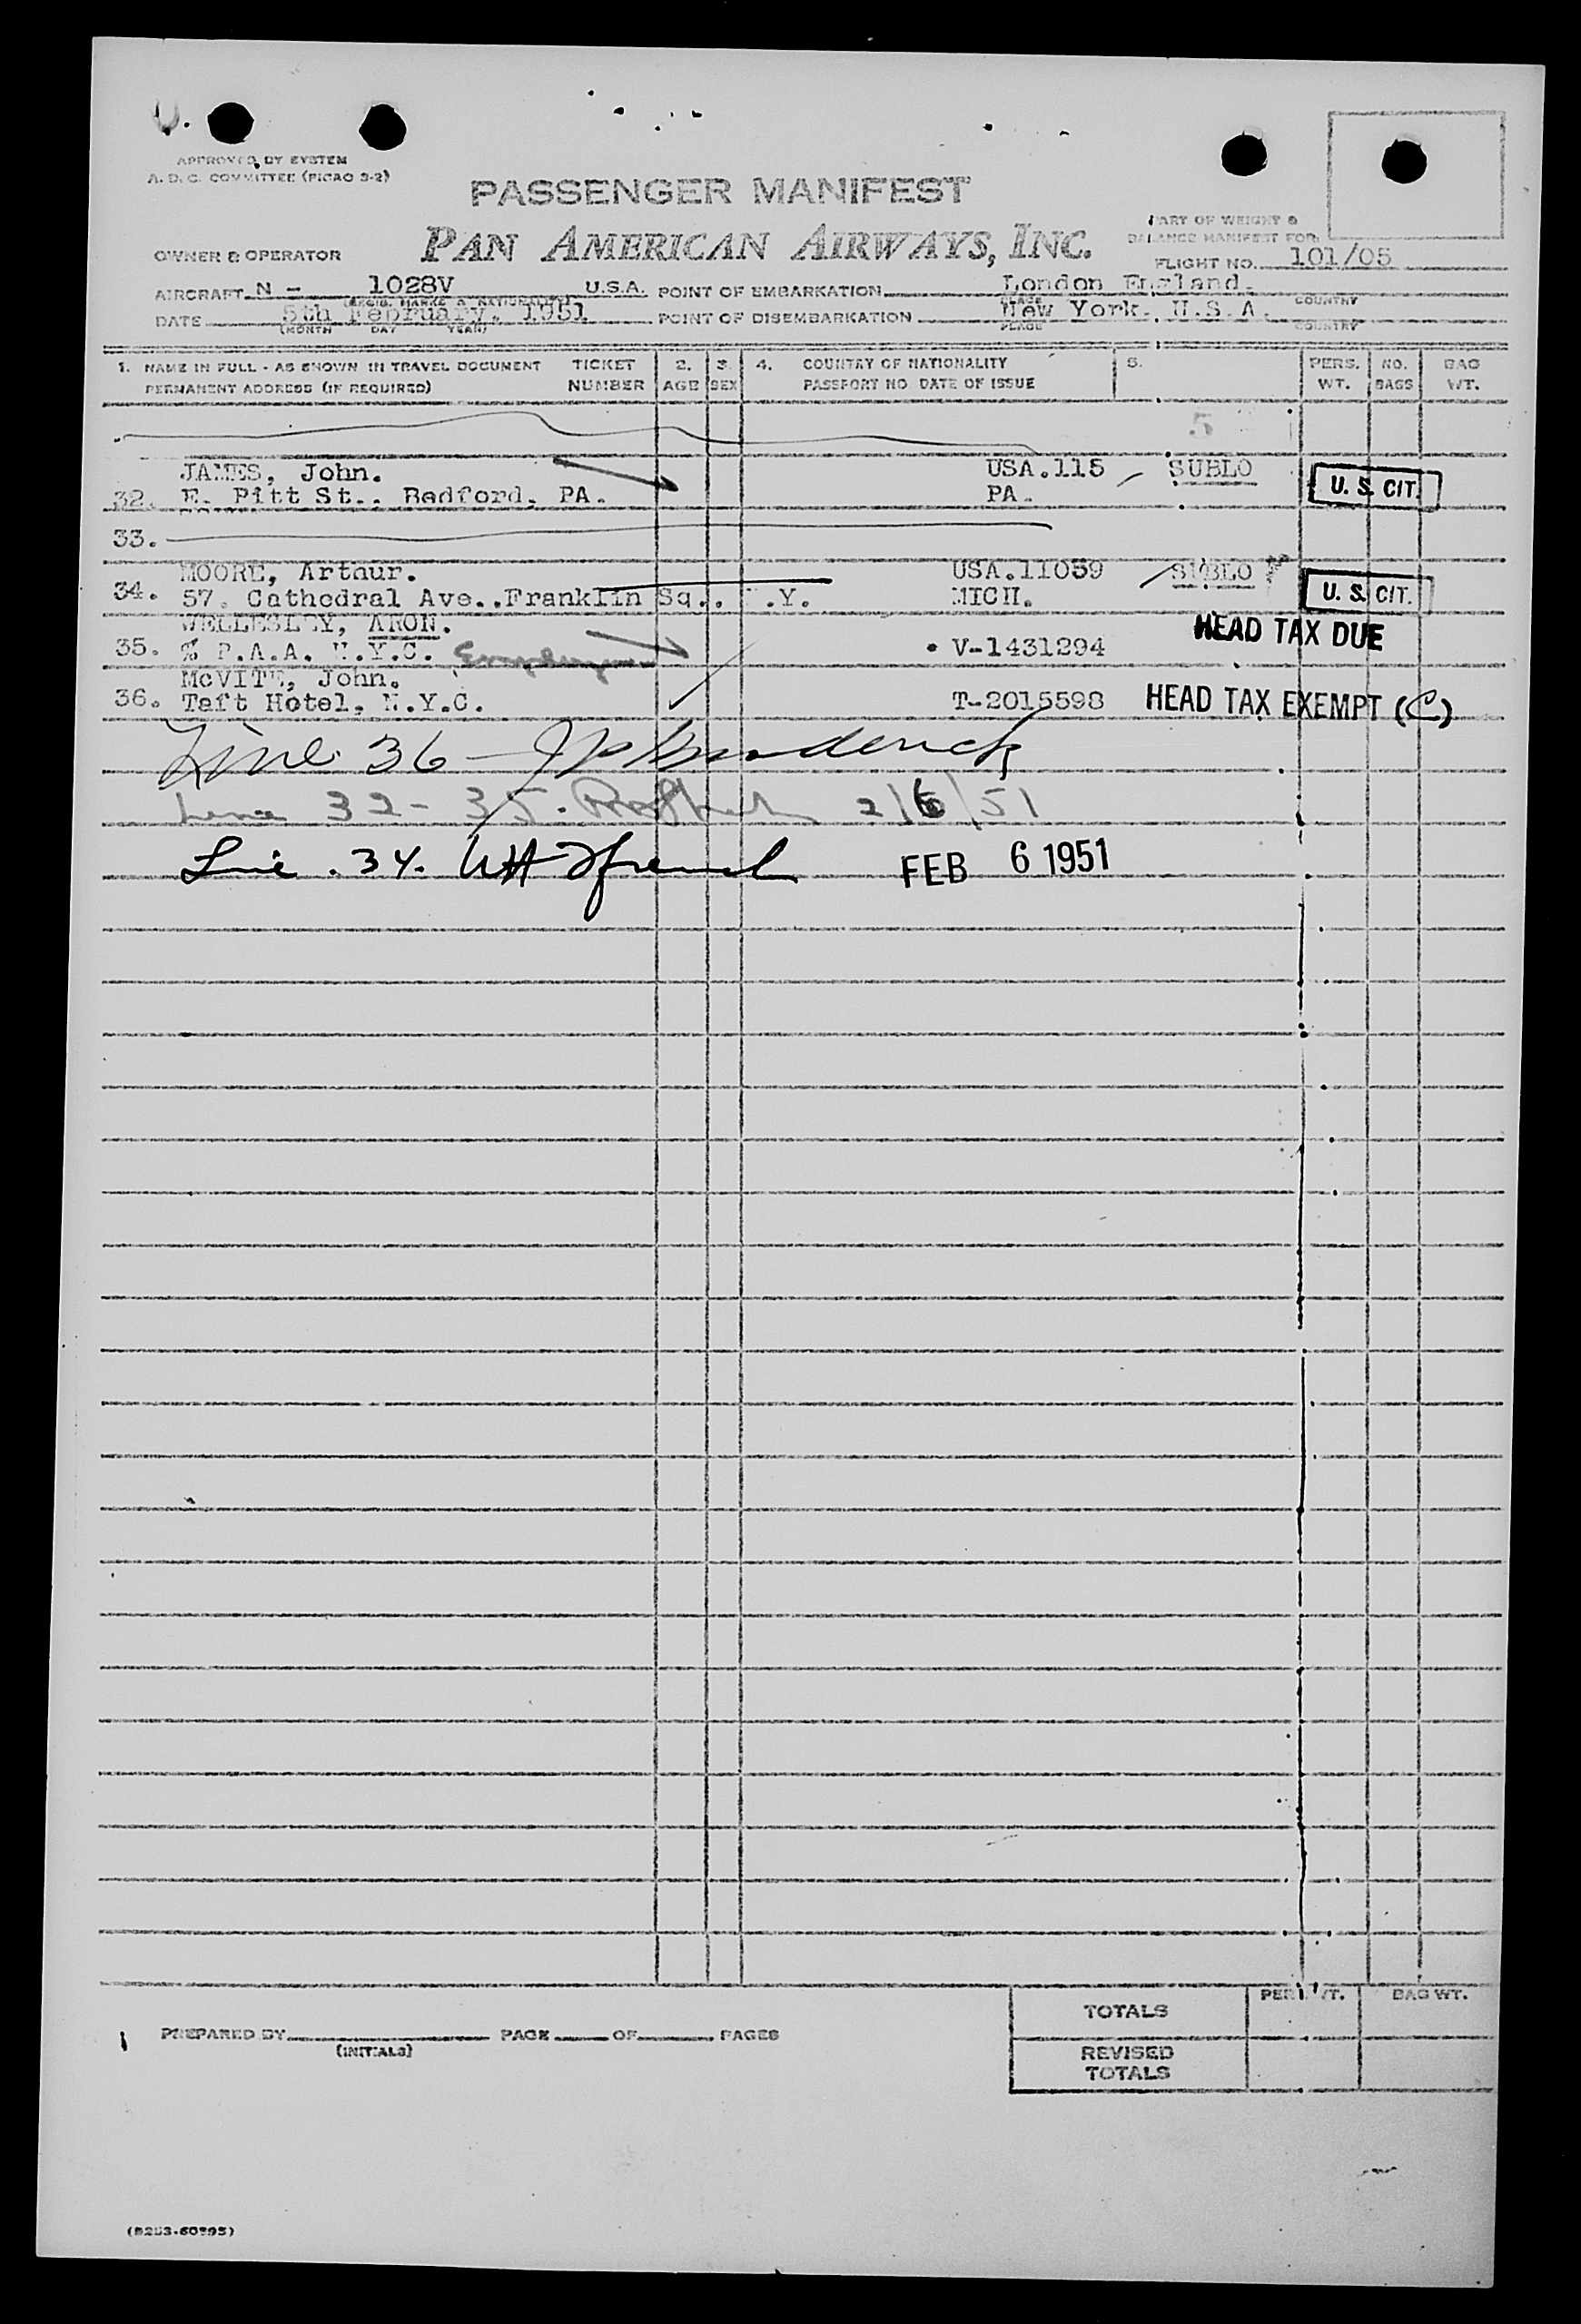 APPROVED BY SYSTEM
A.D.C. COMMITTEE (PICAO 3-2)
PASSENGER MANIFEST
PAN AMERICAN AIRWAYS, INC.
OWNER & OPERATOR
PART OF WEIGHT &
BALANCE MANIFEST FOR
FLIGHT NO. 101/05
AIRCRAFT N - 1028V U.S.A. POINT OF EMBARKATION London England.
PLACE COUNTRY
DATE 5th February. 1951 POINT OF DISEMBARKATION New York. U.S.A.
(MONTH DAY YEAR) PLACE COUNTRY
1. NAME IN FULL - AS SHOWN IN TRAVEL DOCUMENT TICKET 2. 3. 4. COUNTRY OF NATIONALITY 5. PERS. NO. BAG
PERMANENT ADDRESS (IF REQUIRED) NUMBER AGE SEX PASSPORT NO DATE OF ISSUE WT. BAGS WT.
5
JAMES, John. USA.115 SUBLO
32. E. Pitt St.. Bedford. PA. PA. U. S. CIT.
33.
MOORE, Arthur. USA.11059 SUBLO
34. 57. Cathedral Ave..Franklin Sq.. N.Y. MICH. U. S. CIT.
WELLESLEY, ARON. HEAD TAX DUE
35. % P.A.A. N.Y.C. V-1431294
McVITE, John.
36. Taft Hotel, N.Y.C. T-2015598 HEAD TAX EXEMPT (C)
Line 36 - Broderick
Line 32 - 35. 2/6/51
Line . 34. WH French FEB 6 1951
TOTALS PERS. WT. BAG WT.
PREPARED BY PAGE OF PAGES
(INITIALS)
REVISED
TOTALS